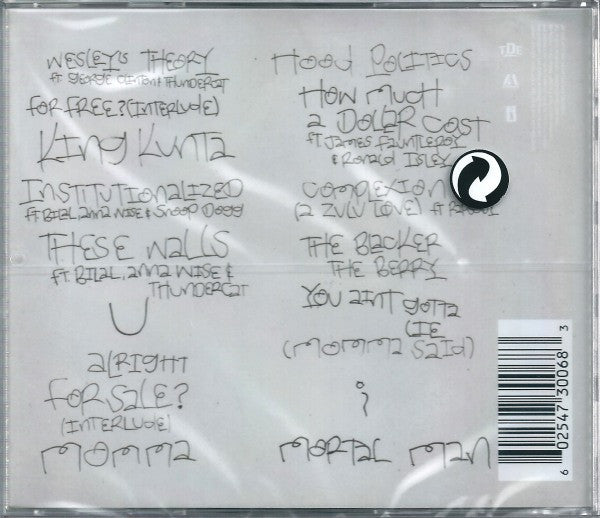 WESLEY'S THEORY
ft GEORGE CLINTON & THUNDERCAT
FOR FREE? (INTERLUDE)
KING KUNTA
INSTITUTIONALIZED
ft BILAL, ANNA WISE & SNOOP DOGG
THESE WALLS
ft BILAL, ANNA WISE &
THUNDERCAT
U
ALRIGHT
FOR SALE?
(INTERLUDE)
MOMMA
HOOD POLITICS
HOW MUCH
A DOLLAR COST
ft JAMES FAUNTLEROY
& RONALD ISLEY
COMPLEXION
(A ZULU LOVE) ft
THE BLACKER
THE BERRY
YOU AINT GOTTA
LIE
(MOMMA SAID)
i
MORTAL MAN
TDE
6 02547 30068 3